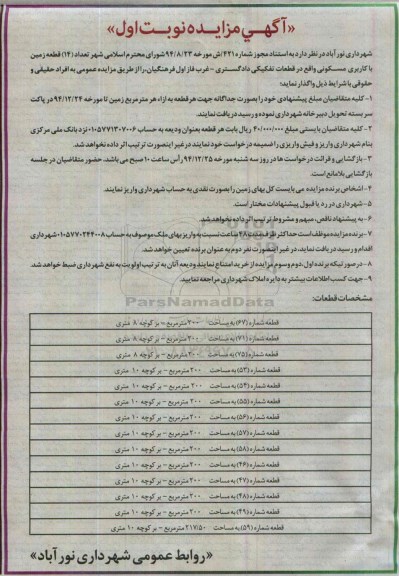 «آگهی مزایده نوبت اول»
شهرداری نورآباد در نظر دارد به استناد مجوز شماره ۴۴۱/ش مورخه ۹۴/۸/۲۳ شورای محترم اسلامی شهر تعداد (۱۴) قطعه زمین
با کاربری مسکونی واقع در قطعات تفکیکی دادگستری - غرب فاز اول فرهنگیان، را از طریق مزایده عمومی به افراد حقیقی و
حقوقی با شرایط ذیل واگذار نماید؛
۱- کلیه متقاضیان مبلغ پیشنهادی خود را بصورت جداگانه جهت هر قطعه به ازاء هر متر مربع زمین تا مورخه ۹۴/۱۲/۲۴ در پاکت
سر بسته تحویل دبیرخانه شهرداری نموده و رسید دریافت نمایند.
۲- کلیه متقاضیان بایستی مبلغ ۴۰/۰۰۰/۰۰۰ ریال بابت هر قطعه بعنوان ودیعه به حساب ۰۱۰۵۷۷۱۳۰۷۰۰۶ نزد بانک ملی مرکزی
بنام شهرداری واریز و فیش واریزی را ضمیمه درخواست خود نمایند در غیر اینصورت ترتیب اثر داده نخواهد شد.
۳- بازگشایی و قرائت درخواست ها در روز سه شنبه مورخه ۹۴/۱۲/۲۵ رأس ساعت ۱۰ صبح می باشد. حضور متقاضیان در جلسه
بازگشایی بلامانع است.
۴- اشخاص برنده مزایده می بایست کل بهای زمین را بصورت نقدی به حساب شهرداری واریز نمایند.
۵- شهرداری در رد یا قبول پیشنهادات مختار است.
۶- به پیشنهاد ناقص، مبهم و مشروط ترتیب اثر داده نخواهد شد.
۷- برنده مزایده موظف است حداکثر ظرف مدت ۴۸ ساعت نسبت به واریز بهای ملک موصوف به حساب ۰۱۰۵۷۷۰۲۴۴۰۰۸ شهرداری
اقدام و رسید دریافت نماید، در غیر اینصورت نفر دوم به عنوان برنده تعیین خواهد شد.
۸- در صورتیکه برنده اول، دوم و سوم مزایده از خرید امتناع نمایند ودیعه آنان به ترتیب اولویت به نفع شهرداری ضبط خواهد شد.
۹- جهت کسب اطلاعات بیشتر به دایره املاک شهرداری مراجعه نمایید.
ParsNamadData
مشخصات قطعات:
قطعه شماره (۶۷) به مساحت ۲۰۰ مترمربع - بر کوچه ۸ متری
قطعه شماره (۷۱) به مساحت ۲۰۰ مترمربع - بر کوچه ۸ متری
قطعه شماره (۷۵) به مساحت ۲۰۰ مترمربع - بر کوچه ۸ متری
قطعه شماره (۵۳) به مساحت ۲۰۰ مترمربع - بر کوچه ۱۰ متری
قطعه شماره (۵۴) به مساحت ۲۰۰ مترمربع - بر کوچه ۱۰ متری
قطعه شماره (۵۵) به مساحت ۲۰۰ مترمربع - بر کوچه ۱۰ متری
قطعه شماره (۵۶) به مساحت ۲۰۰ مترمربع - بر کوچه ۱۰ متری
قطعه شماره (۵۷) به مساحت ۲۰۰ مترمربع - بر کوچه ۱۰ متری
قطعه شماره (۵۸) به مساحت ۲۰۰ مترمربع - بر کوچه ۱۰ متری
قطعه شماره (۴۶) به مساحت ۲۰۰ مترمربع - بر کوچه ۱۰ متری
قطعه شماره (۴۷) به مساحت ۲۰۰ مترمربع - بر کوچه ۱۰ متری
قطعه شماره (۴۸) به مساحت ۲۰۰ مترمربع - بر کوچه ۱۰ متری
قطعه شماره (۴۹) به مساحت ۲۰۰ مترمربع - بر کوچه ۱۰ متری
قطعه شماره (۵۹) به مساحت ۲۱۷/۵۰ مترمربع - بر کوچه ۱۰ متری
«روابط عمومی شهرداری نورآباد»